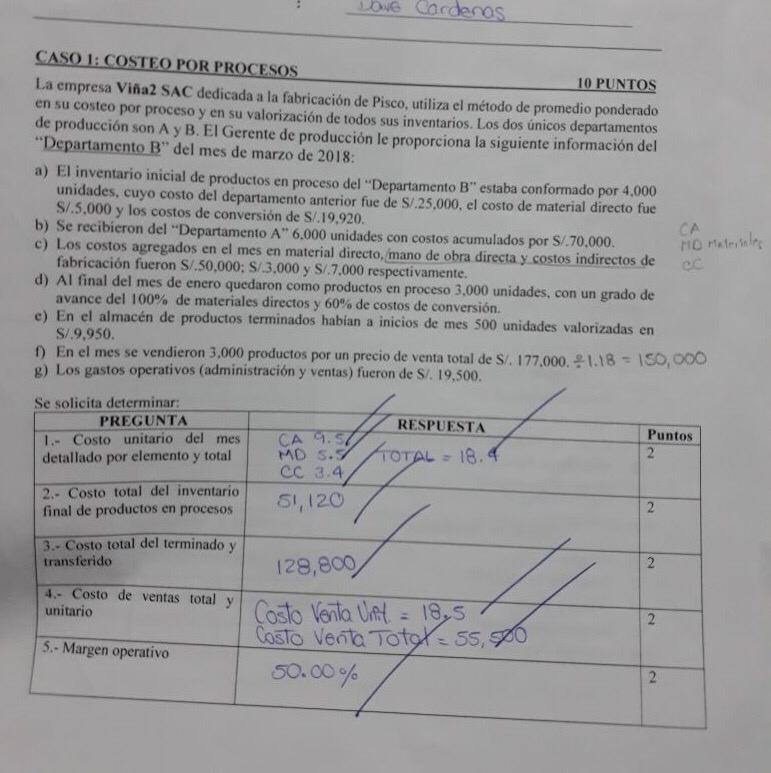 : Dave Cardenas
CASO 1: COSTEO POR PROCESOS
10 PUNTOS
La empresa Viña2 SAC dedicada a la fabricación de Pisco, utiliza el método de promedio ponderado
en su costeo por proceso y en su valorización de todos sus inventarios. Los dos únicos departamentos
de producción son A y B. El Gerente de producción le proporciona la siguiente información del
“Departamento B” del mes de marzo de 2018:
a) El inventario inicial de productos en proceso del “Departamento B” estaba conformado por 4,000
unidades, cuyo costo del departamento anterior fue de S/.25,000, el costo de material directo fue
S/.5,000 y los costos de conversión de S/.19,920.
b) Se recibieron del “Departamento A” 6,000 unidades con costos acumulados por S/.70,000.
c) Los costos agregados en el mes en material directo, mano de obra directa y costos indirectos de
fabricación fueron S/.50,000; S/.3,000 y S/.7,000 respectivamente.
CA
MD Materiales
CC
d) Al final del mes de enero quedaron como productos en proceso 3,000 unidades, con un grado de
avance del 100% de materiales directos y 60% de costos de conversión.
e) En el almacén de productos terminados habían a inicios de mes 500 unidades valorizadas en
S/.9,950.
f) En el mes se vendieron 3,000 productos por un precio de venta total de S/. 177,000. ÷1.18 = 150,000
g) Los gastos operativos (administración y ventas) fueron de S/. 19,500.
Se solicita determinar:
PREGUNTA
RESPUESTA
Puntos
1.- Costo unitario del mes
detallado por elemento y total
CA 9.5
MD 5.5 TOTAL = 18.4
CC 3.4
2
2.- Costo total del inventario
final de productos en procesos
51,120
2
3.- Costo total del terminado y
transferido
128,800
2
4.- Costo de ventas total y
unitario
Costo Venta Unit. = 18.5
Costo Venta Total = 55,500
2
5.- Margen operativo
50.00%
2